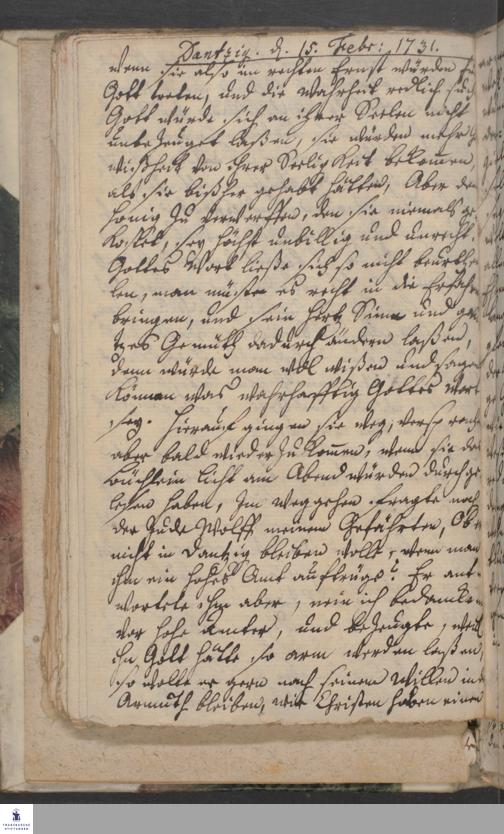 Dantzig. d. 15. Febr: 1731.
wenn sie also im rechten Ernst würden für
Gott treten, und die Wahrheit redlich such
Gott würde sich an ihrer Seelen nicht
unbezeuget laßen, sie würden mehr Ge
wißheit von ihrer Seeligkeit bekommen,
als sie bißher gehabt hätten, Aber den
Honig zu verwerffen, den sie niemals ge
kostet, sey höchst unbillig und unrecht.
Gottes Wort ließe sich so nicht beurthei
len, man müste es recht in die Erfahr
bringen, und sein Hertz Sinn und gan
tzes Gemüth dadurch ändern laßen,
denn würde man wol wißen und sagen
können was wahrhafftig Gottes Wort
sey. Hierauf gingen sie weg, versprachen
aber bald wieder zu kommen, wenn sie das
Büchlein Licht am Abend würden durchge
lesen haben, Im weggehen fragte noch
der Jude Wolff meinen Gefährten, Ob er
nicht in Dantzig bleiben wolte, wenn man
ihm ein hohes Amt auftrüge? Er ant-
wortete ihm aber, nein ich bedancke
vor hohe Ämter, und bezeugte, weil
ihn Gott hätte so arm werden laßen,
so wolte er gern nach seinem Willen in
Armuth bleiben, wir Christen haben einen
FRANCKESCHE
STIFTUNGEN